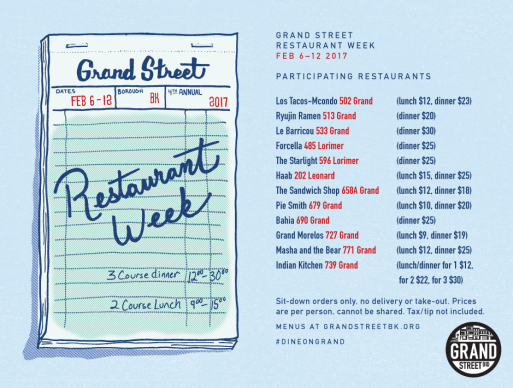 Grand Street
DATES
FEB 6-12
BOROUGH
BK
4TH ANNUAL
2017
Restaurant
Week
3 Course dinner 12⁰⁰-30⁰⁰
2 Course Lunch 9⁰⁰-15⁰⁰
GRAND STREET
RESTAURANT WEEK
FEB 6–12 2017
PARTICIPATING RESTAURANTS
Los Tacos-Mcondo 502 Grand (lunch $12, dinner $23)
Ryujin Ramen 513 Grand (dinner $20)
Le Barricou 533 Grand (dinner $30)
Forcella 485 Lorimer (dinner $25)
The Starlight 596 Lorimer (dinner $25)
Haab 202 Leonard (lunch $15, dinner $25)
The Sandwich Shop 658A Grand (lunch $12, dinner $18)
Pie Smith 679 Grand (lunch $10, dinner $20)
Bahia 690 Grand (dinner $25)
Grand Morelos 727 Grand (lunch $9, dinner $19)
Masha and the Bear 771 Grand (lunch $12, dinner $25)
Indian Kitchen 739 Grand (lunch/dinner for 1 $12,
for 2 $22, for 3 $30)
Sit-down orders only, no delivery or take-out. Prices
are per person, cannot be shared. Tax/tip not included.
MENUS AT GRANDSTREETBK.ORG
#DINEONGRAND
GRAND
STREET BID